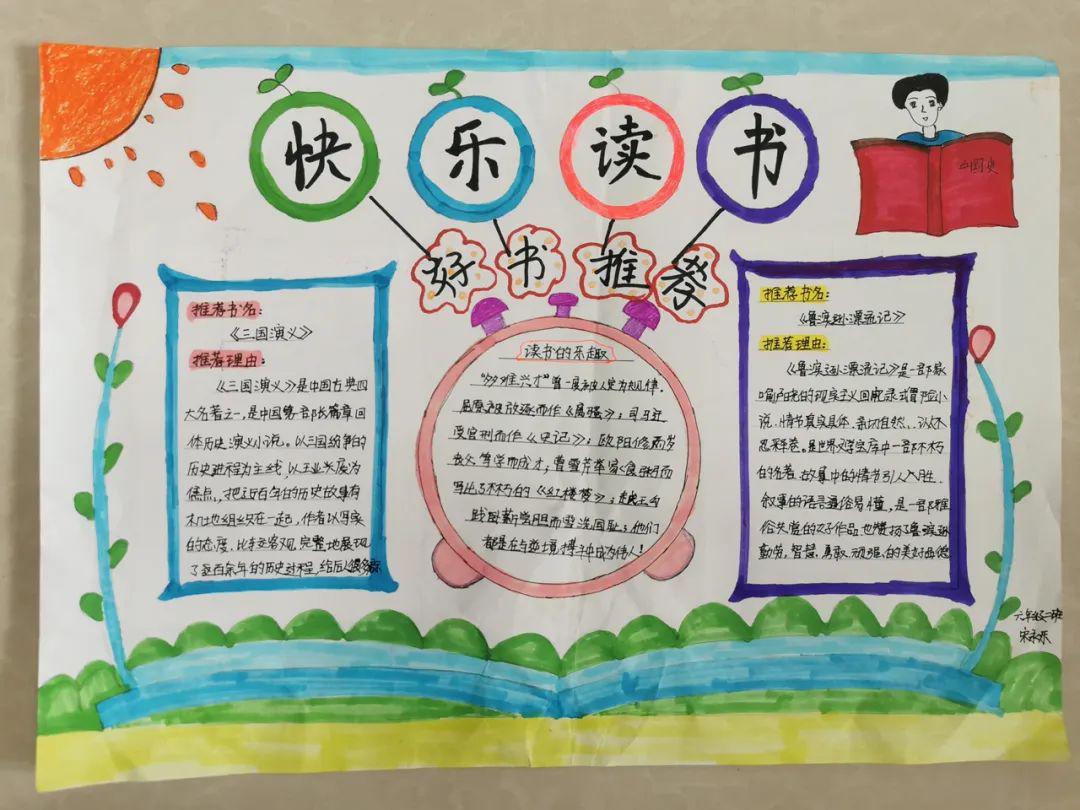 快乐读书
好书推荐
中国史
推荐书名:
《三国演义》
推荐理由:
《三国演义》是中国古典四
大名著之一,是中国第一部长篇章回
体历史演义小说。以三国纷争的
历史进程为主线,以王业发展为
焦点,把近百年的历史故事有
机地组织在一起,作者以写实
的态度,比较客观完整地展现
了近百余年的历史过程,给后人
读书的乐趣
"多难兴才"皆一展
屈原被放逐而作《离骚》;司马迁
受宫刑而作《史记》;欧阳修两岁
丧父苦学而成才;曹雪芹举家食粥而
写出了不朽的《红楼梦》;越王勾
践卧薪尝胆而雪洗国耻;他们
都是在与逆境搏斗中成为伟人!
推荐书名:
《鲁滨逊漂流记》
推荐理由:
《鲁滨逊漂流记》是一部脍
的现实主义回忆录式冒险小
说,情节真实具体、亲切自然
是世界文学宝库中一部不朽
的名著,故事中的情节引人入胜,
叙事的语言通俗易懂,是一部雅
俗共赏的好作品,也赞扬了鲁滨逊
勤劳,智慧,勇敢,顽强,的美好品德
六年级二班